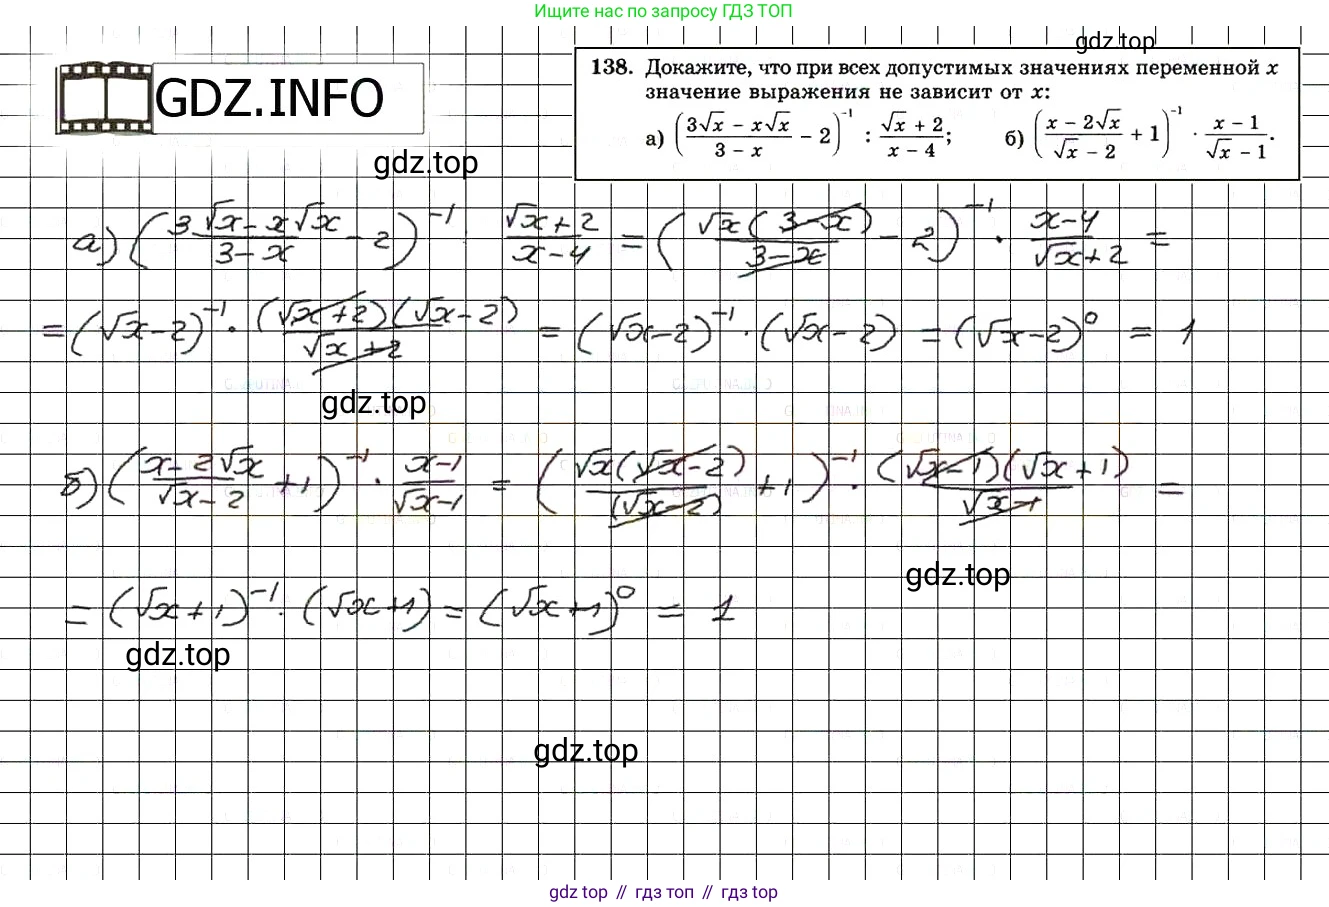 Ищите нас по запросу ГДЗ ТОП
gdz.top
GDZ.INFO
138. Докажите, что при всех допустимых значениях переменной x
значение выражения не зависит от x:
а) ((3√x − x√x)/(3 − x) − 2)^-1 : (√x + 2)/(x − 4); б) ((x − 2√x)/(√x − 2) + 1)^-1 · (x − 1)/(√x − 1).
gdz.top
а) ((3√x − x√x)/(3 − x) − 2)^-1 : (√x + 2)/(x − 4) = (√x(3 − x)/(3 − x) − 2)^-1 · (x − 4)/(√x + 2) =
= (√x − 2)^-1 · (√x + 2)(√x − 2)/(√x + 2) = (√x − 2)^-1 · (√x − 2) = (√x − 2)^0 = 1
gdz.top
б) ((x − 2√x)/(√x − 2) + 1)^-1 · (x − 1)/(√x − 1) = (√x(√x − 2)/(√x − 2) + 1)^-1 · (√x − 1)(√x + 1)/(√x − 1) =
gdz.top
= (√x + 1)^-1 · (√x + 1) = (√x + 1)^0 = 1
gdz.top
gdz.top
gdz top // гдз топ // гдз top